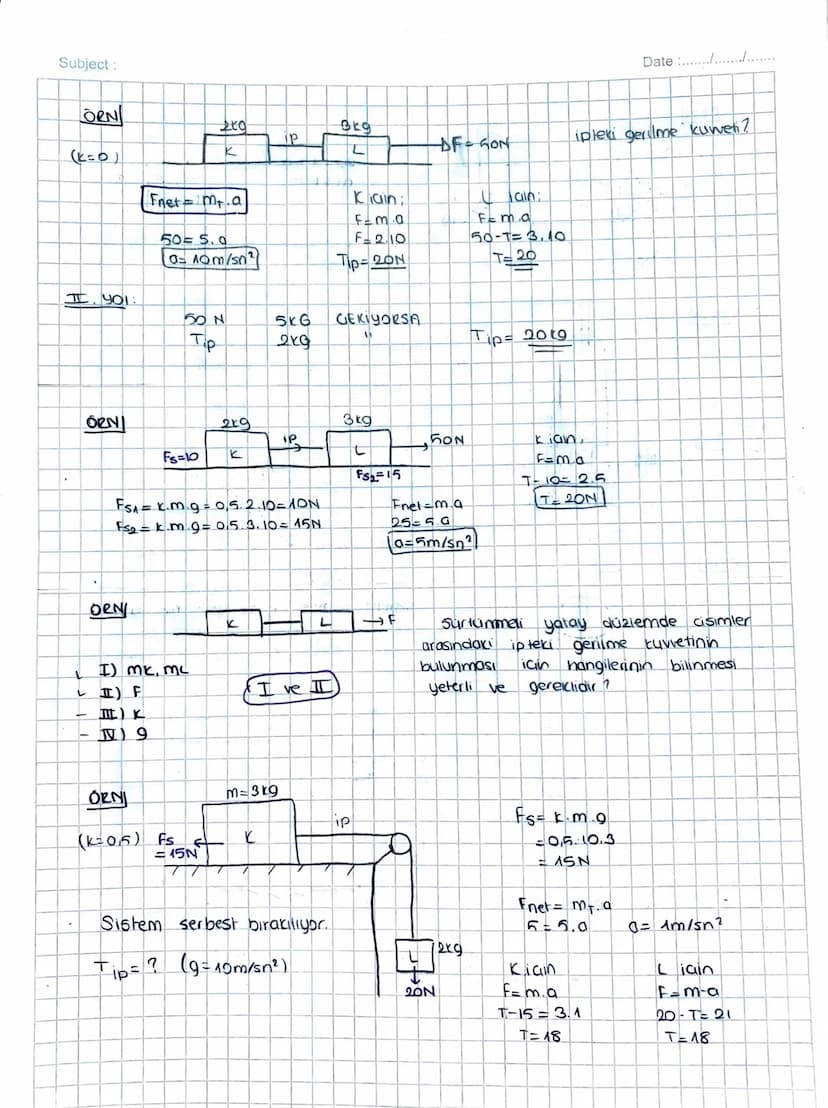 Subject :
Date :....../......./.......
ÖRN
2kg
3kg
ip
K
L
F=50N
ipteki gerilme kuvveti?
(k=0)
Fnet= mT.a
50=5.a
a=10m/sn²
K için;
F=m.a
F=2.10
Tip=20N
L için;
F=m.a
50-T=3.10
T=20
II. yol:
50N 5kG ÇEKİYORSA
Tip 2kG "
Tip= 20kg
ÖRN
2kg
3kg
ip
50N
Fs=10
K
L
Fs2=15
Fs1=k.m.g=0,5.2.10=10N
Fs2=k.m.g=0,5.3.10=15N
Fnet=m.a
25=5.a
a=5m/sn²
K için,
F=m.a
T-10=2.5
T=20N
ÖRN
K
L
F
Sürtünmeli yatay düzlemde cisimler
arasındaki ipteki gerilme kuvvetinin
bulunması için hangilerinin bilinmesi
yeterli ve gereklidir?
I) mK, mL
II) F
- III) k
- IV) g
I ve II
ÖRN
m=3kg
(k=0,5)
Fs
=15N
K
ip
L
2kg
20N
Sistem serbest bırakılıyor.
Tip=? (g=10m/sn²)
Fs=k.m.g
=0,5.10.3
=15N
Fnet= mT.a
5=5.a a=1m/sn²
K için
F=m.a
T-15=3.1
T=18
L için
F=m.a
20-T=21
T=18